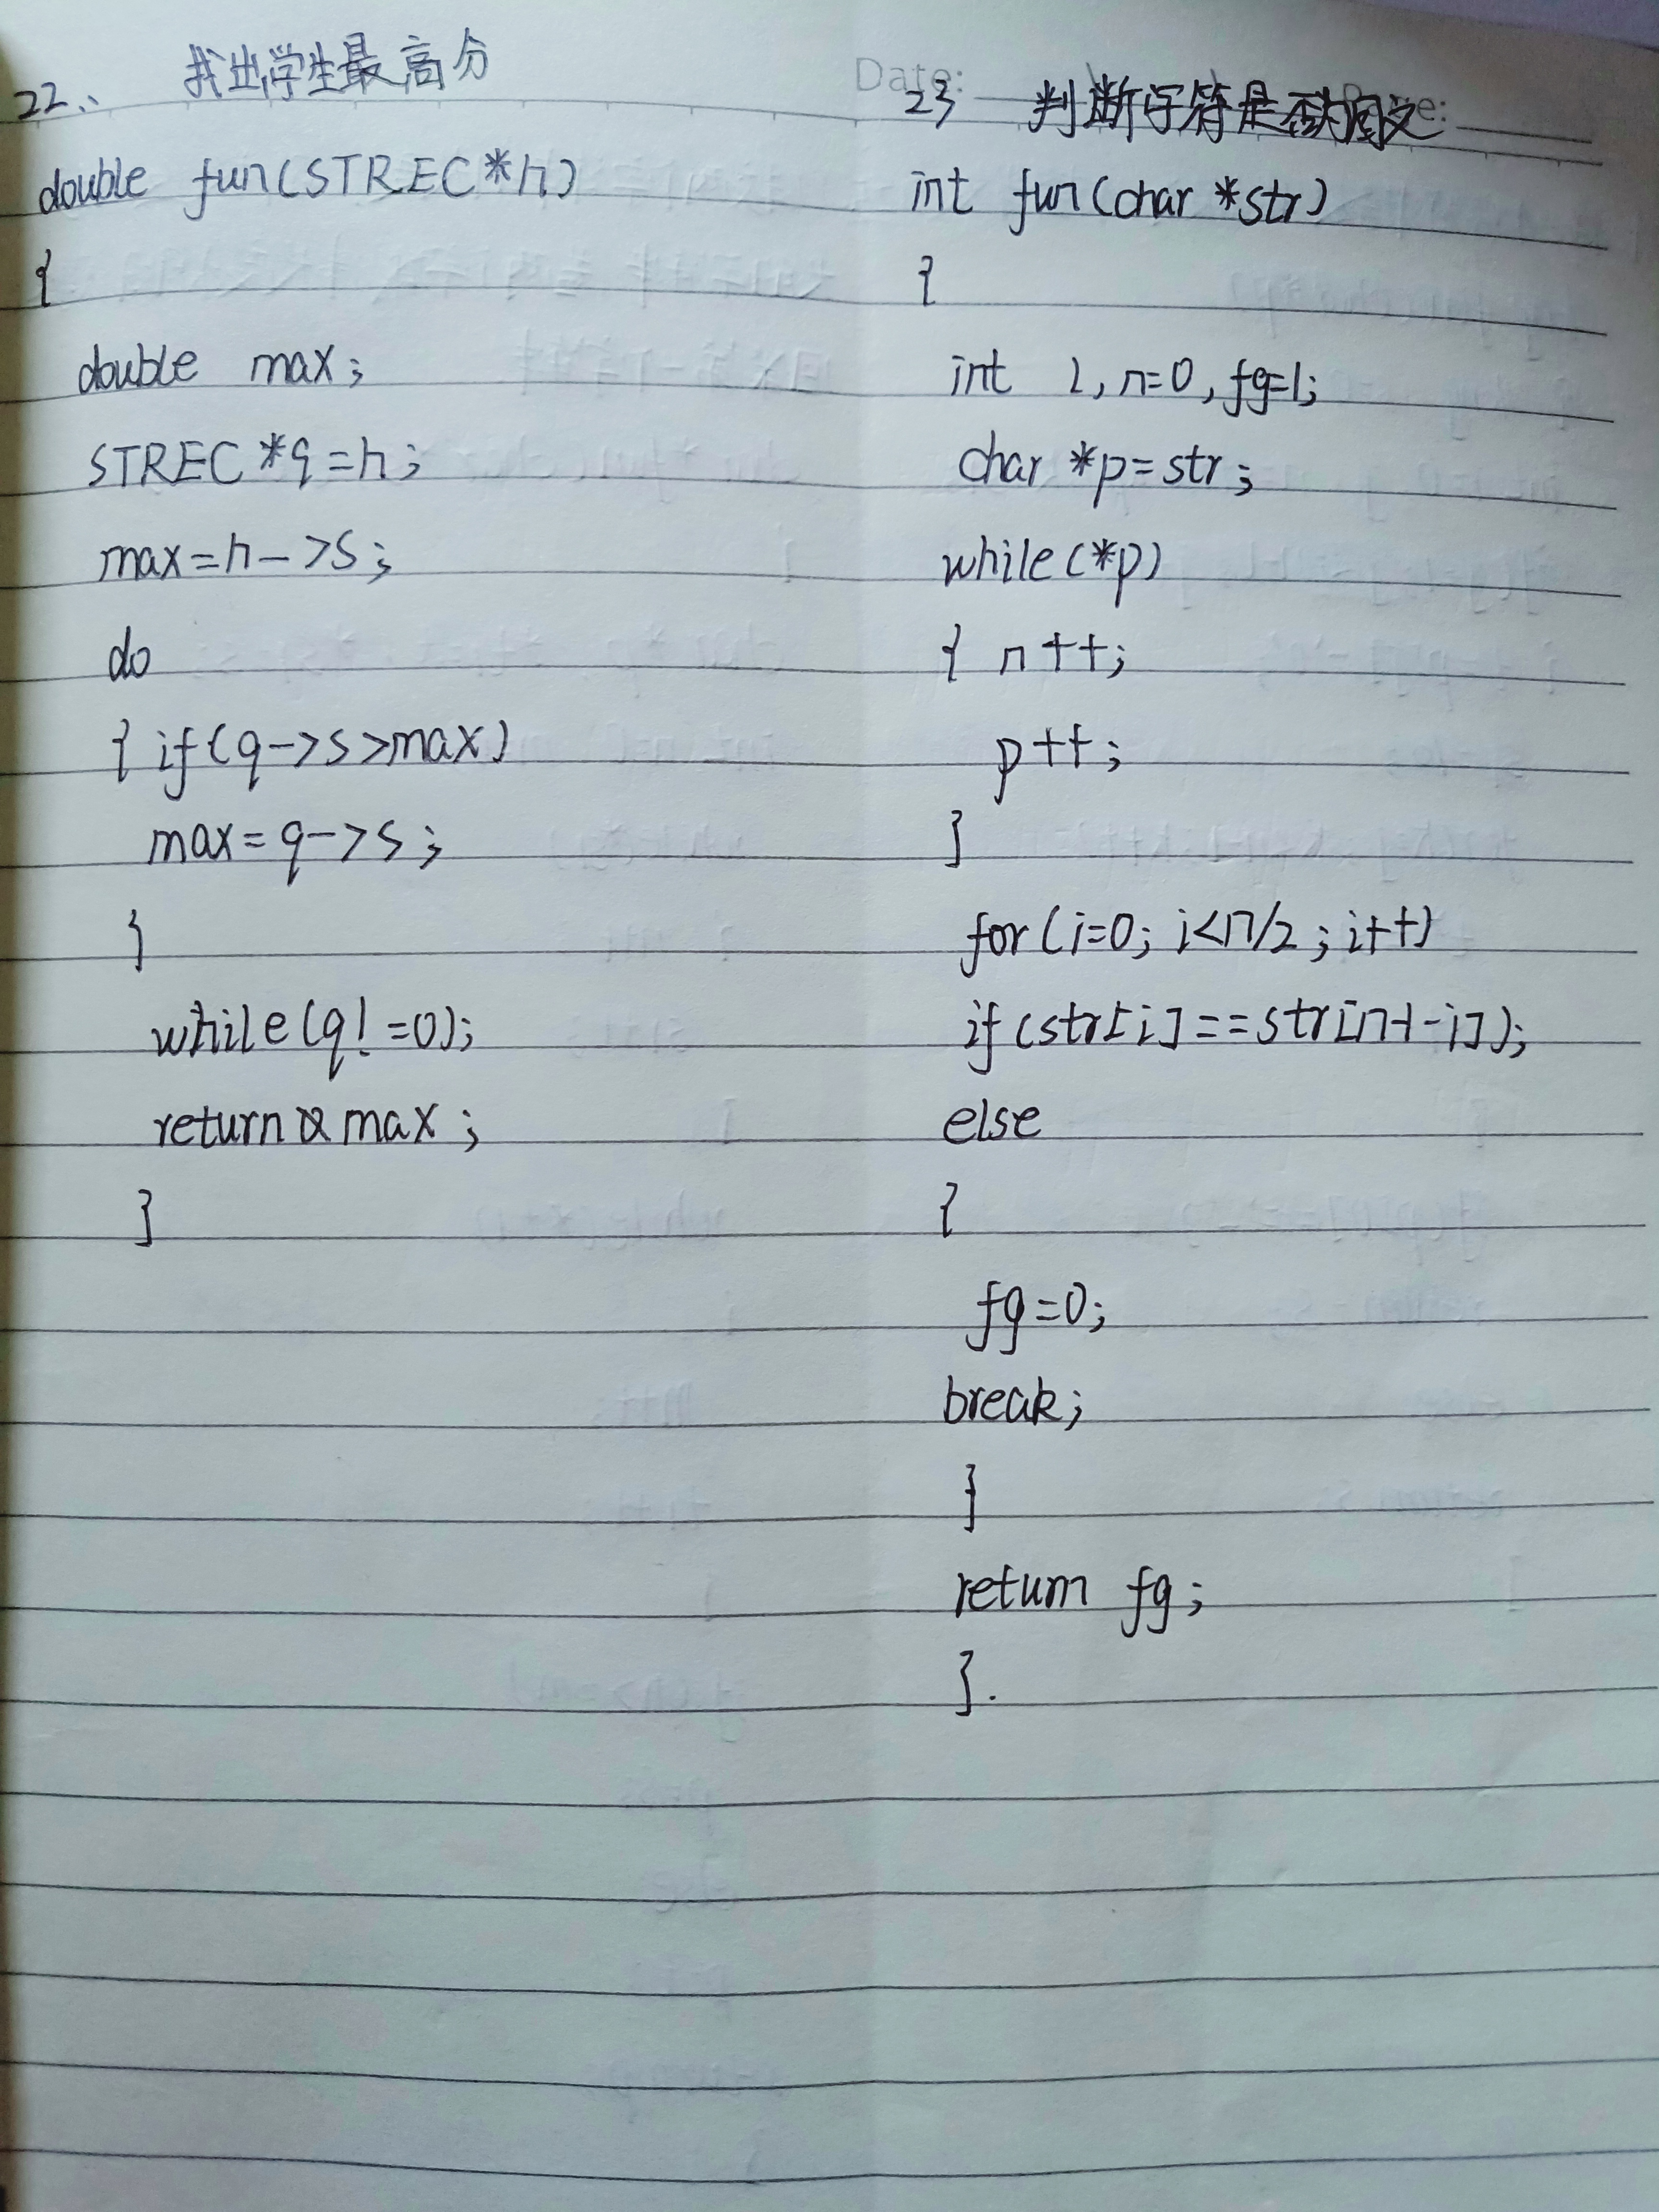 22.. 找出学生最高分
double fun(STREC*h)
{
double max;
STREC *q=h;
max=h->s;
do
{ if(q->s>max)
max=q->s;
}
while(q!=0);
return max;
}
Date:
23 判断字符是否为回文
int fun(char *str)
{
int i,n=0,fg=1;
char *p=str;
while(*p)
{ n++;
p++;
}
for(i=0;i<n/2;i++)
if(str[i]==str[n-1-i]);
else
{
fg=0;
break;
}
return fg;
}.